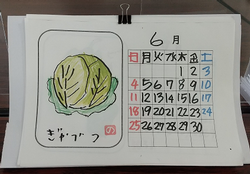 6月
日 月 火 水 木 金 土
1 2 3
4 5 6 7 8 9 10
11 12 13 14 15 16 17
18 19 20 21 22 23 24
25 26 27 28 29 30
きゃべつ
の